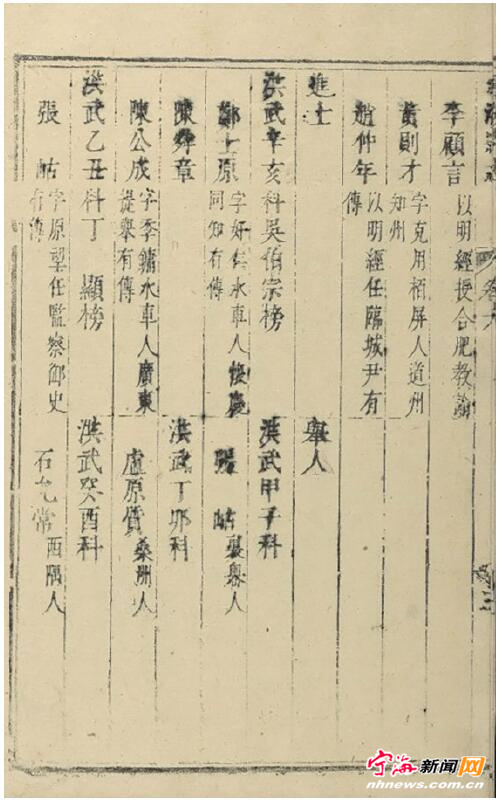 李顧言 以明經授合肥教諭
黃則才 字克用栢屏人道州
知州
趙仲年 以明經任臨城尹有
傳
進士 舉人
洪武辛亥科吳伯宗榜 洪武甲子科
鄭士原 字好仁水車人懷慶
同知有傳 張帖 裏嶴人
陳舜章 洪武丁卯科
陳公成 字季鏞水車人廣東
提舉有傳 盧原質 桑洲人
洪武乙丑科丁顯榜 洪武癸酉科
張帖 字原 任監察御史
有傳 石允常 西隅人
宁海新闻网
nhnews.com.cn